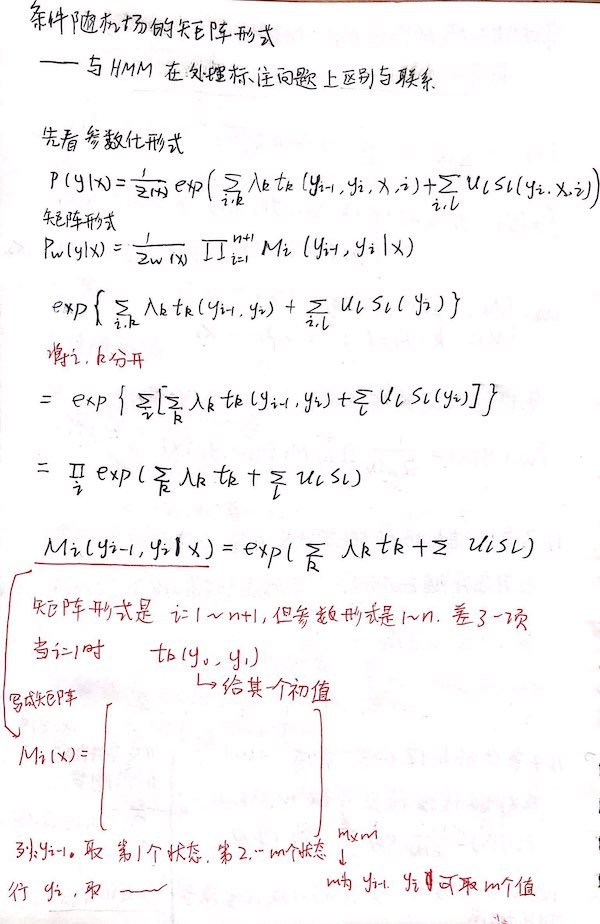 条件随机场的矩阵形式
—— 与HMM 在处理标注问题上区别与联系
先看参数化形式
P(y|x)=1/Z(x) exp(∑_{i,k} λk tk (yi-1, yi, x, i)+∑_{i,l} Ul Sl(yi, x, i))
矩阵形式
Pw(y|x) = 1/Zw(x) ∏_{i=1}^{n+1} Mi (yi-1, yi|x)
exp{ ∑_{i,k} λk tk(yi-1, yi) + ∑_{i,l} Ul Sl(yi)}
将i, k分开
= exp { ∑_i[∑_k λk tk(yi-1, yi)+∑_l Ul Sl(yi)]}
= ∏_i exp(∑_k λk tk + ∑_l Ul Sl)
Mi(yi-1, yi|x) = exp(∑_k λk tk+∑ Ul Sl)
矩阵形式是 i=1~n+1, 但参数形式是1~n. 差了一项
当i=1时 tk(y0, y1)
↳给其一个初值
写成矩阵
Mi(x)= [ ]
m×m
列: yi-1. 取 第1个状态. 第2, … m个状态
↓
m为 yi-1, yi 可取m个值
行 yi, 取 ——